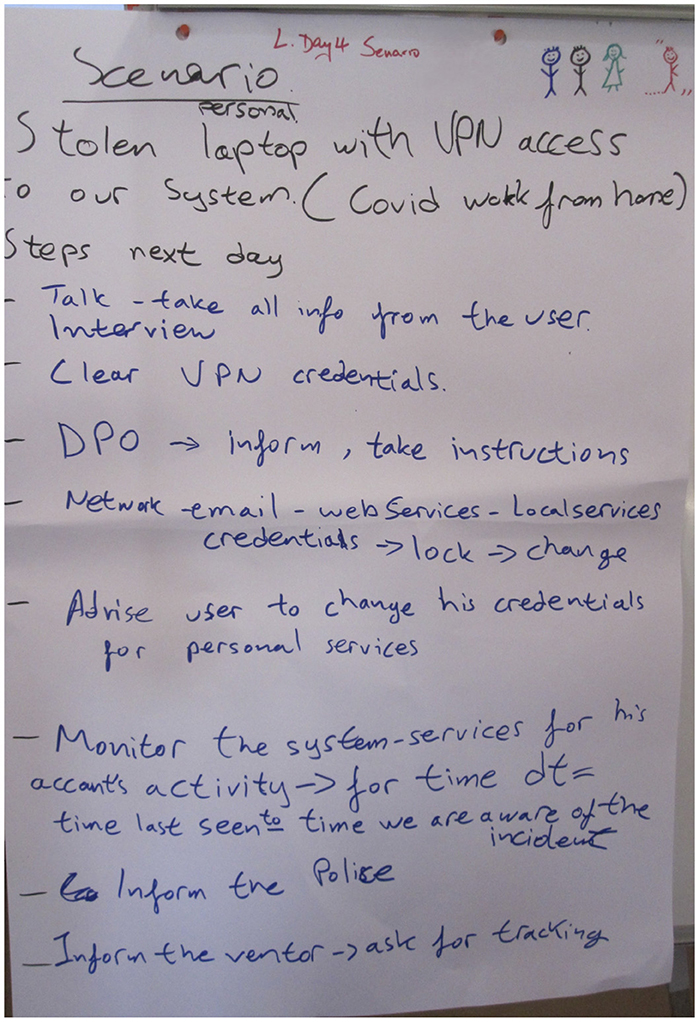 L. Day 4 Senarro
Scenario
personal
Stolen laptop with VPN access
to our System. (Covid work from home)
Steps next day
- Talk - take all info from the user.
Interview
- Clear VPN credentials.
- DPO → inform, take instructions
- Network - email - web Services - Local services
credentials → lock → change
- Advise user to change his credentials
for personal services
- Monitor the system-services for his
accant's activity → for time dt =
time last seen to time we are aware of the
incident
- Inform the Police
- Inform the ventor → ask for tracking